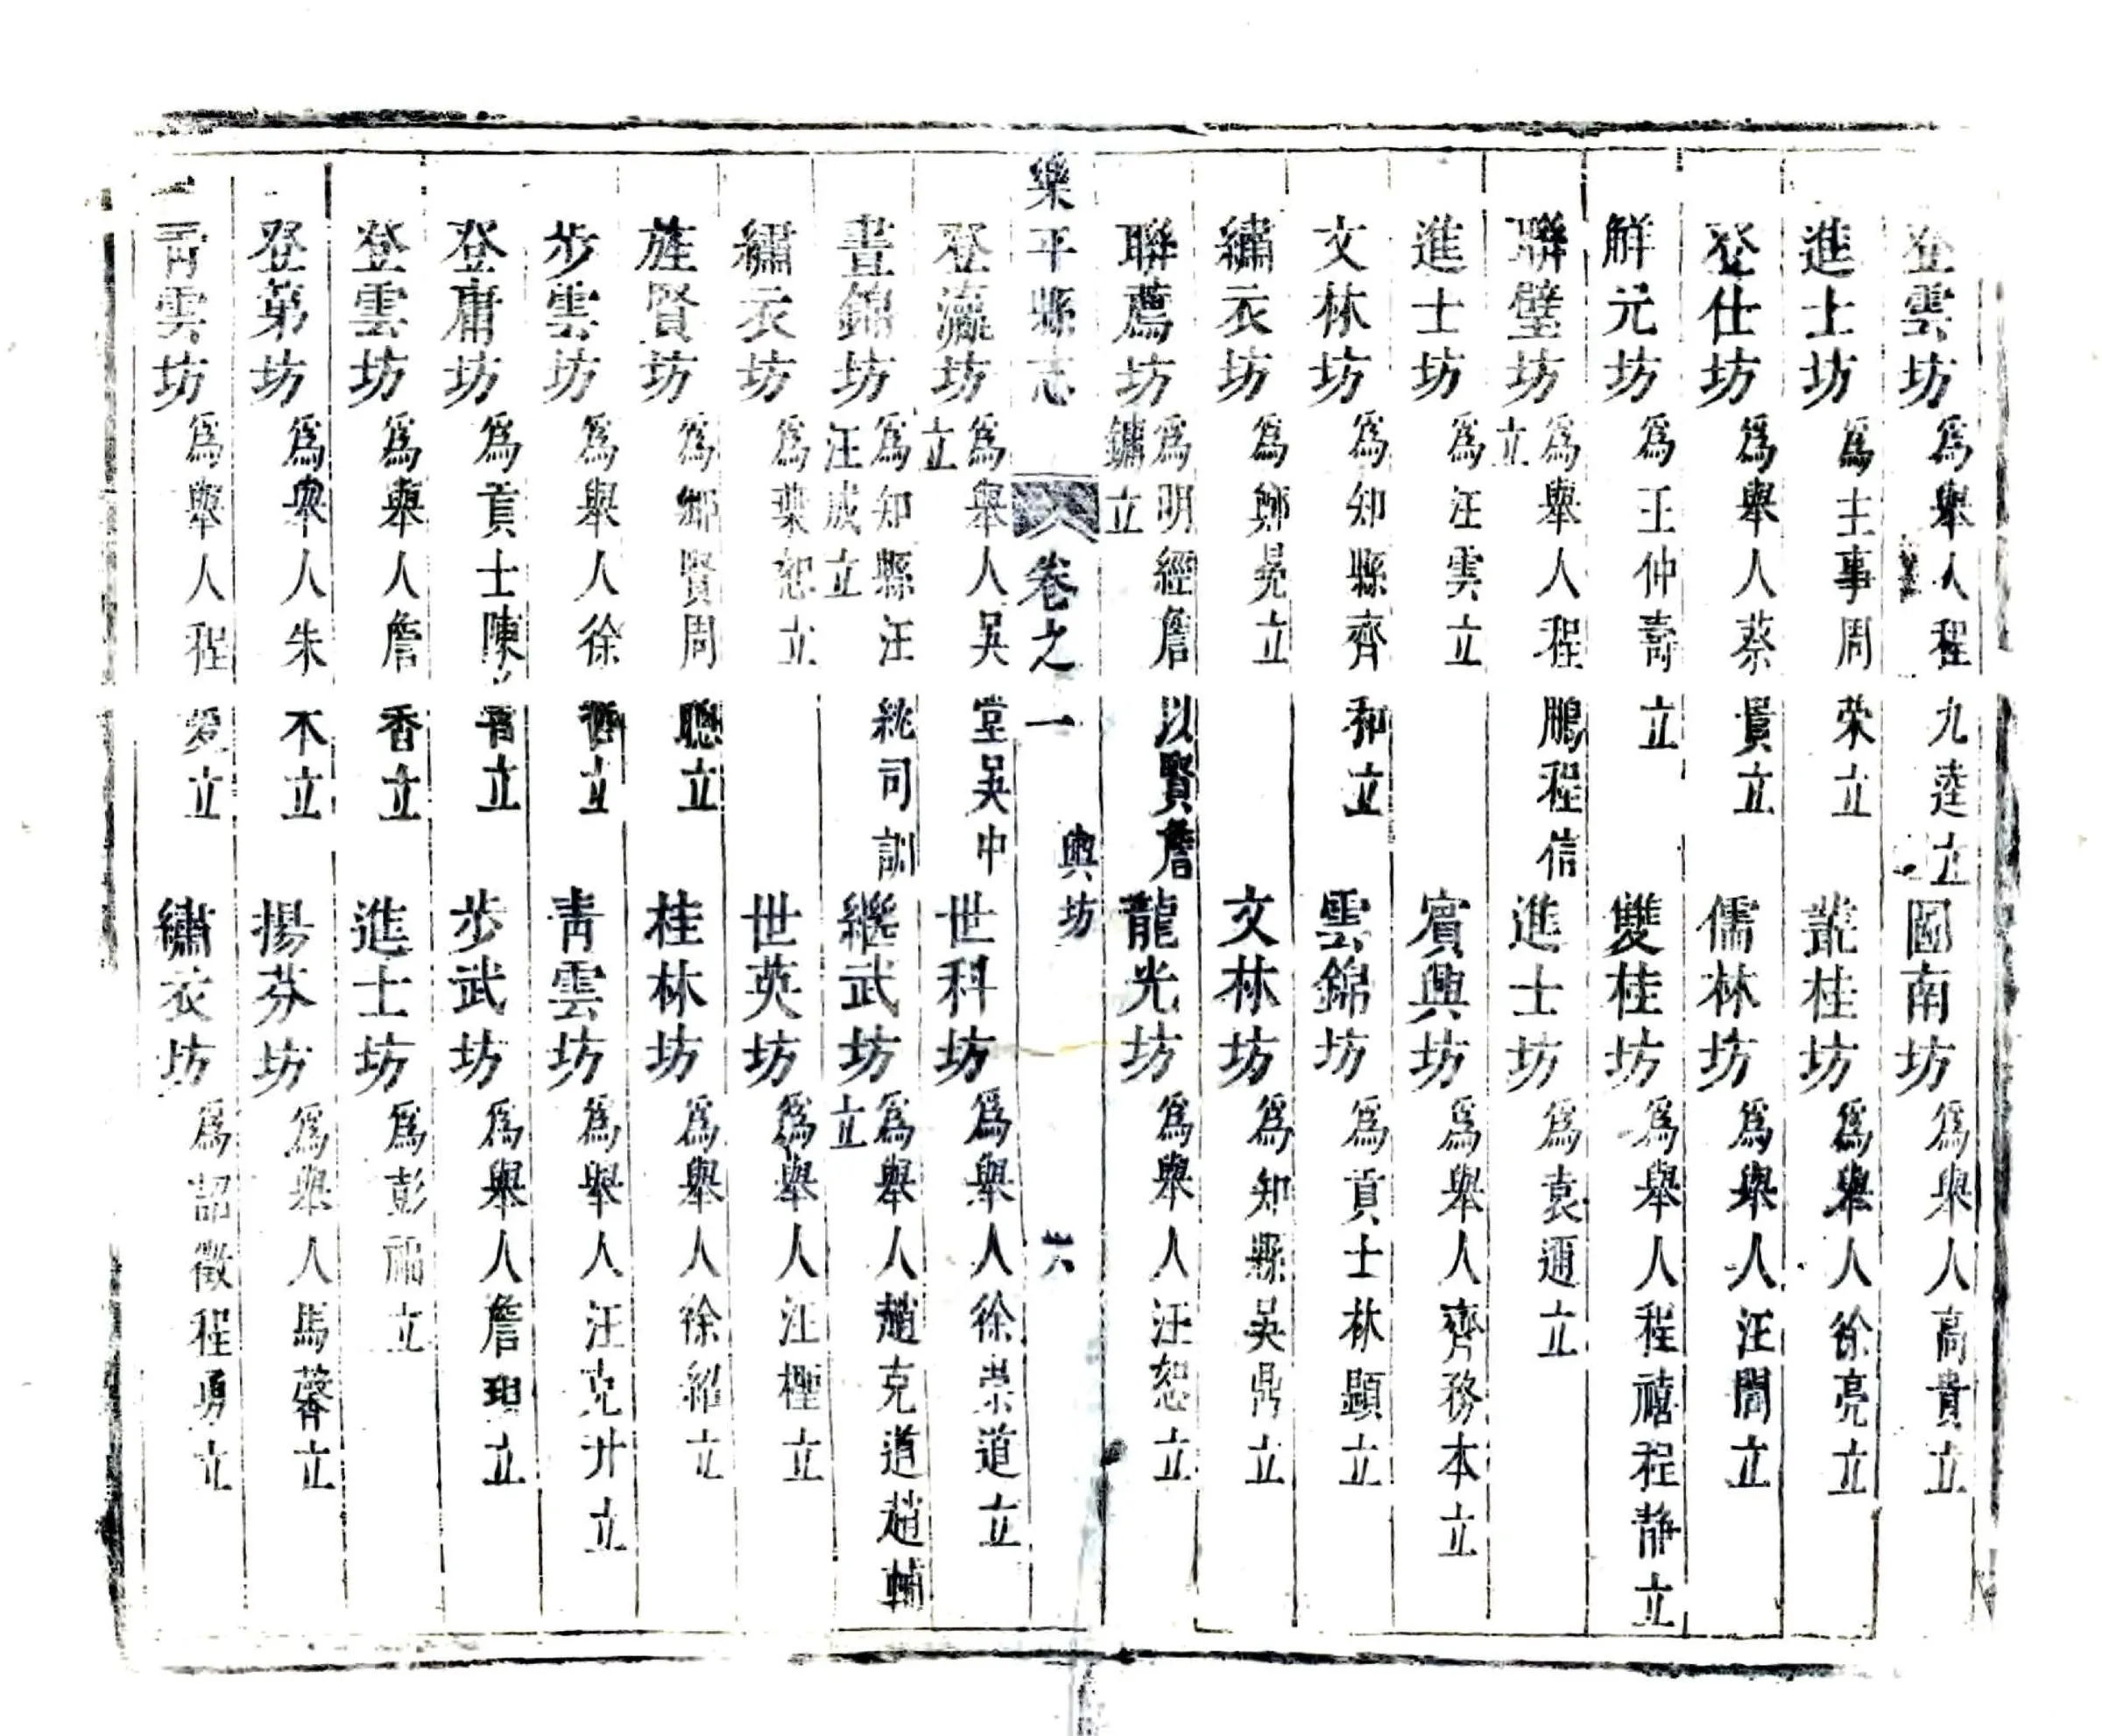 登雲坊 爲舉人程九逵立 國南坊 爲舉人高貴立
進士坊 爲主事周榮立 叢桂坊 爲舉人徐亮立
登仕坊 爲舉人蔡立 儒林坊 爲舉人汪誾立
解元坊 爲王仲壽立 雙桂坊 爲舉人程禧程靜立
聯璧坊 爲舉人程鵬程信立 進士坊 爲袁通立
進士坊 爲汪雲立 賓興坊 爲舉人齊務本立
文林坊 爲知縣齊和立 雲錦坊 爲貢士林顯立
繡衣坊 爲鄭晃立 文林坊 爲知縣吳鼎立
聯薦坊 爲明經詹以賢詹鏞立 龍光坊 爲舉人汪恕立
樂平縣志 卷之一 輿坊 六
登瀛坊 爲舉人吳堂吳中立 世科坊 爲舉人徐崇道立
晝錦坊 爲知縣汪紞司訓汪成立 繼武坊 爲舉人趙克道趙輔立
繡衣坊 爲葉恕立 世英坊 爲舉人汪檉立
旌賢坊 爲鄉賢周聰立 桂林坊 爲舉人徐紹立
步雲坊 爲舉人徐立 靑雲坊 爲舉人汪克廾立
登庸坊 爲貢士陳立 步武坊 爲舉人詹立
登雲坊 爲舉人詹香立 進士坊 爲彭福立
登第坊 爲舉人朱不立 揚芬坊 爲舉人馬蓉立
靑雲坊 爲舉人程爰立 繡衣坊 爲詔徵程勇立